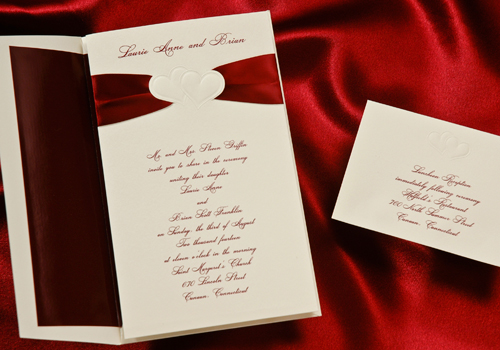 Laurie Anne and Brian
Mr. and Mrs. Steven Griffin
invite you to share in the ceremony
uniting their daughter
Laurie Anne
and
Brian Scott Franklin
on Sunday, the third of August
Two thousand fourteen
at eleven o'clock in the morning
Saint Margaret's Church
670 Lincoln Street
Connecticut
Luncheon Reception
immediately following ceremony
Restaurant
700 North Summer Street
Connecticut